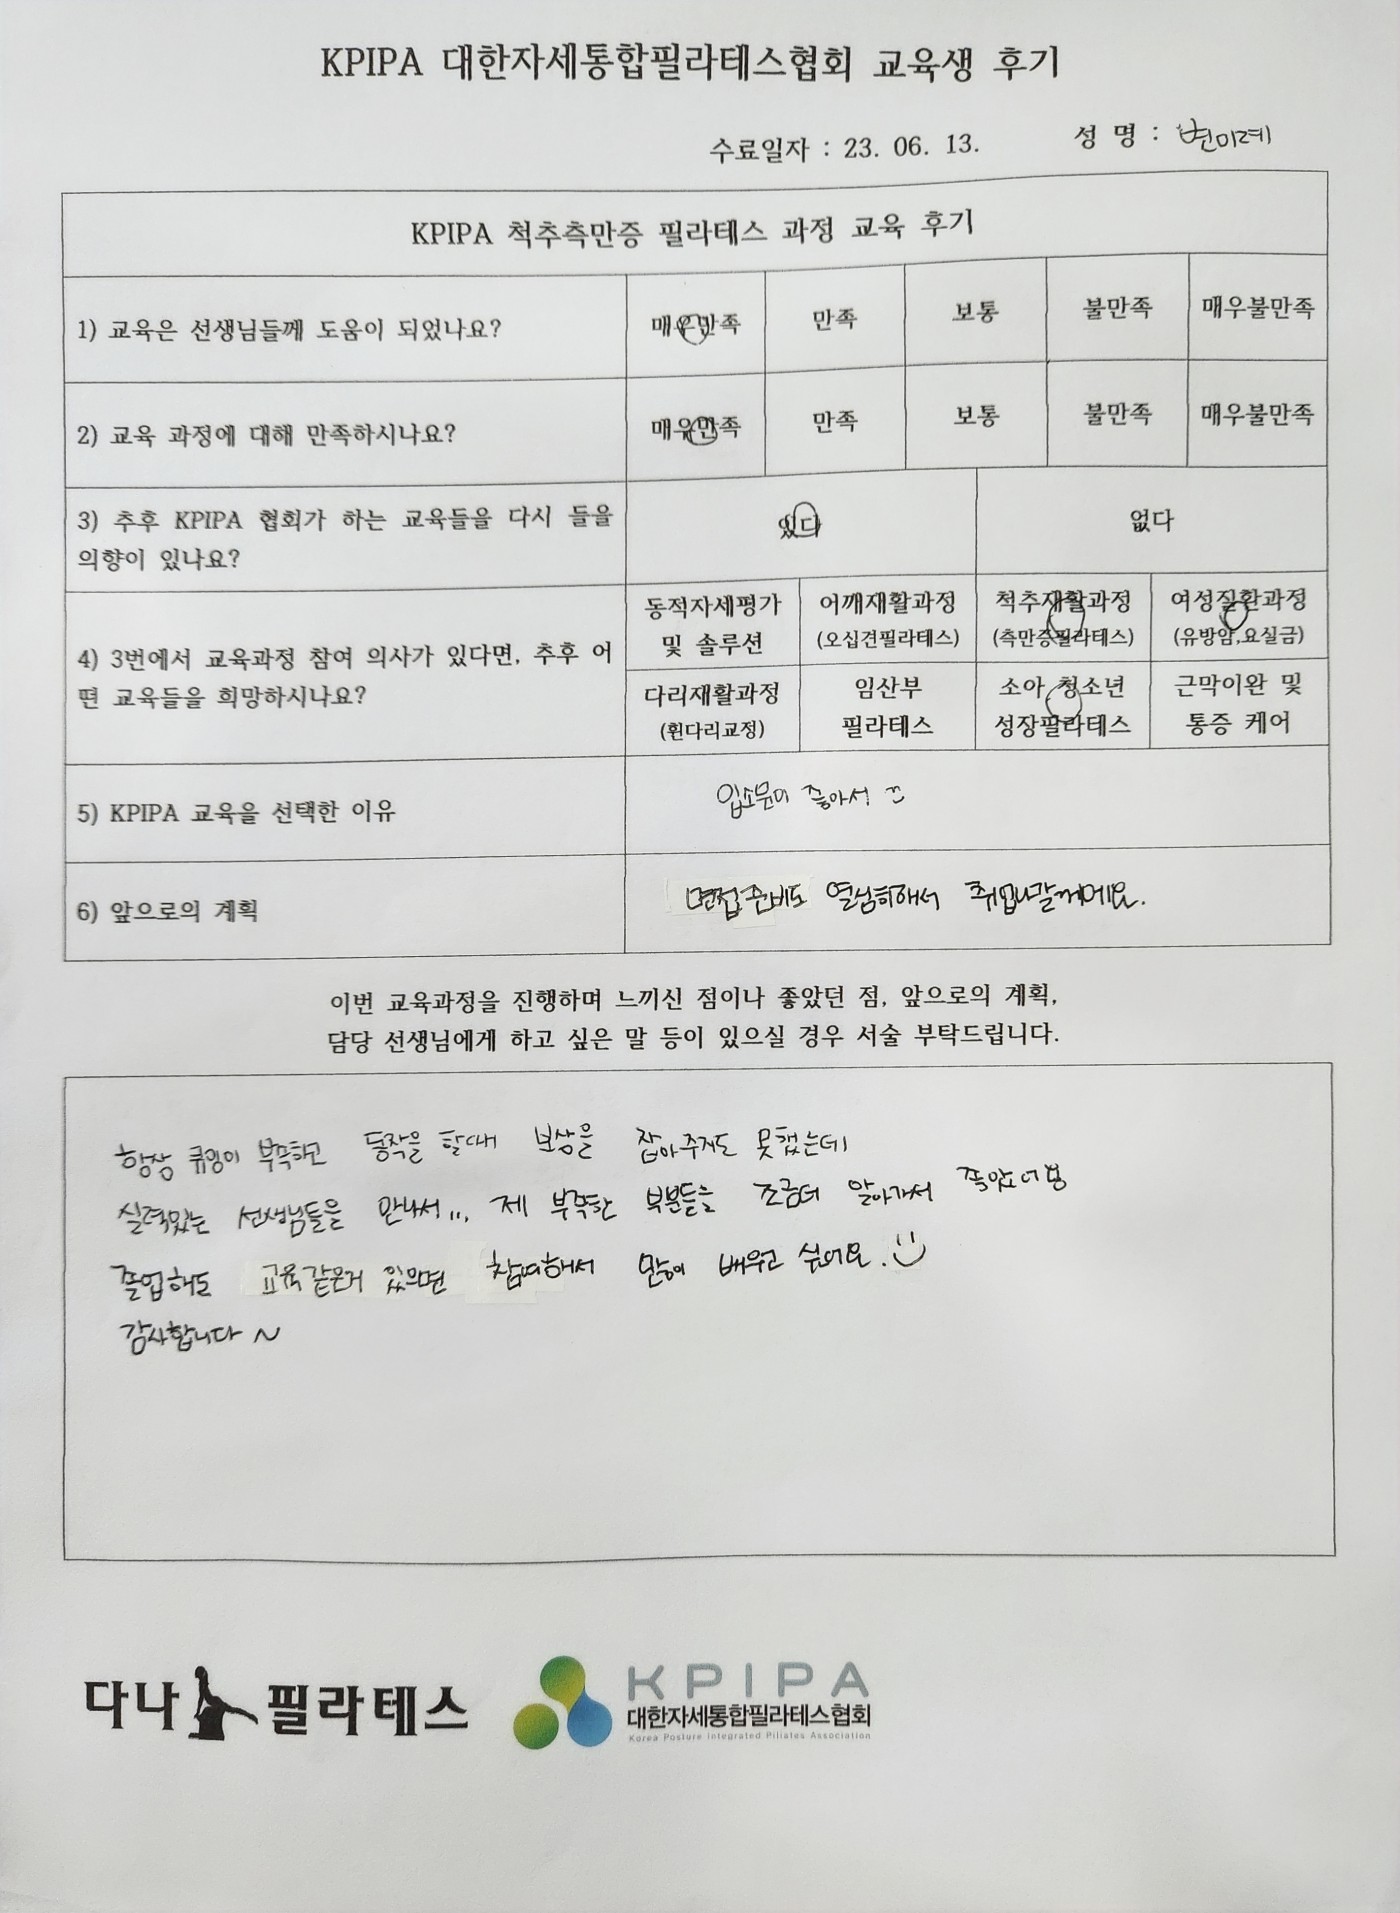 KPIPA 대한자세통합필라테스협회 교육생 후기
수료일자 : 23. 06. 13. 성 명 : 변미례
KPIPA 척추측만증 필라테스 과정 교육 후기
1) 교육은 선생님들께 도움이 되었나요? 매우만족 만족 보통 불만족 매우불만족
2) 교육 과정에 대해 만족하시나요? 매우만족 만족 보통 불만족 매우불만족
3) 추후 KPIPA 협회가 하는 교육들을 다시 들을
의향이 있나요?
있다 없다
4) 3번에서 교육과정 참여 의사가 있다면, 추후 어
떤 교육들을 희망하시나요?
동적자세평가 어깨재활과정 척추재활과정 여성질환과정
및 솔루션 (오십견필라테스) (측만증필라테스) (유방암,요실금)
다리재활과정 임산부 소아 청소년 근막이완 및
(휜다리교정) 필라테스 성장필라테스 통증 케어
5) KPIPA 교육을 선택한 이유 입소문이 좋아서
6) 앞으로의 계획 면접준비도 열심히해서 취업나갈께에요.
이번 교육과정을 진행하며 느끼신 점이나 좋았던 점, 앞으로의 계획,
담당 선생님에게 하고 싶은 말 등이 있으실 경우 서술 부탁드립니다.
항상 큐잉이 부족하고 동작을 할때 보상을 잡아주지도 못했는데
실력있는 선생님들을 만나서... 제 부족한 부분들을 조금더 알아가서 좋았어용
졸업해도 교육같은거 있으면 참여해서 많이 배우고 싶어요.
감사합니다~
다나 필라테스
KPIPA
대한자세통합필라테스협회
Korea Posture Integrated Piliates Association